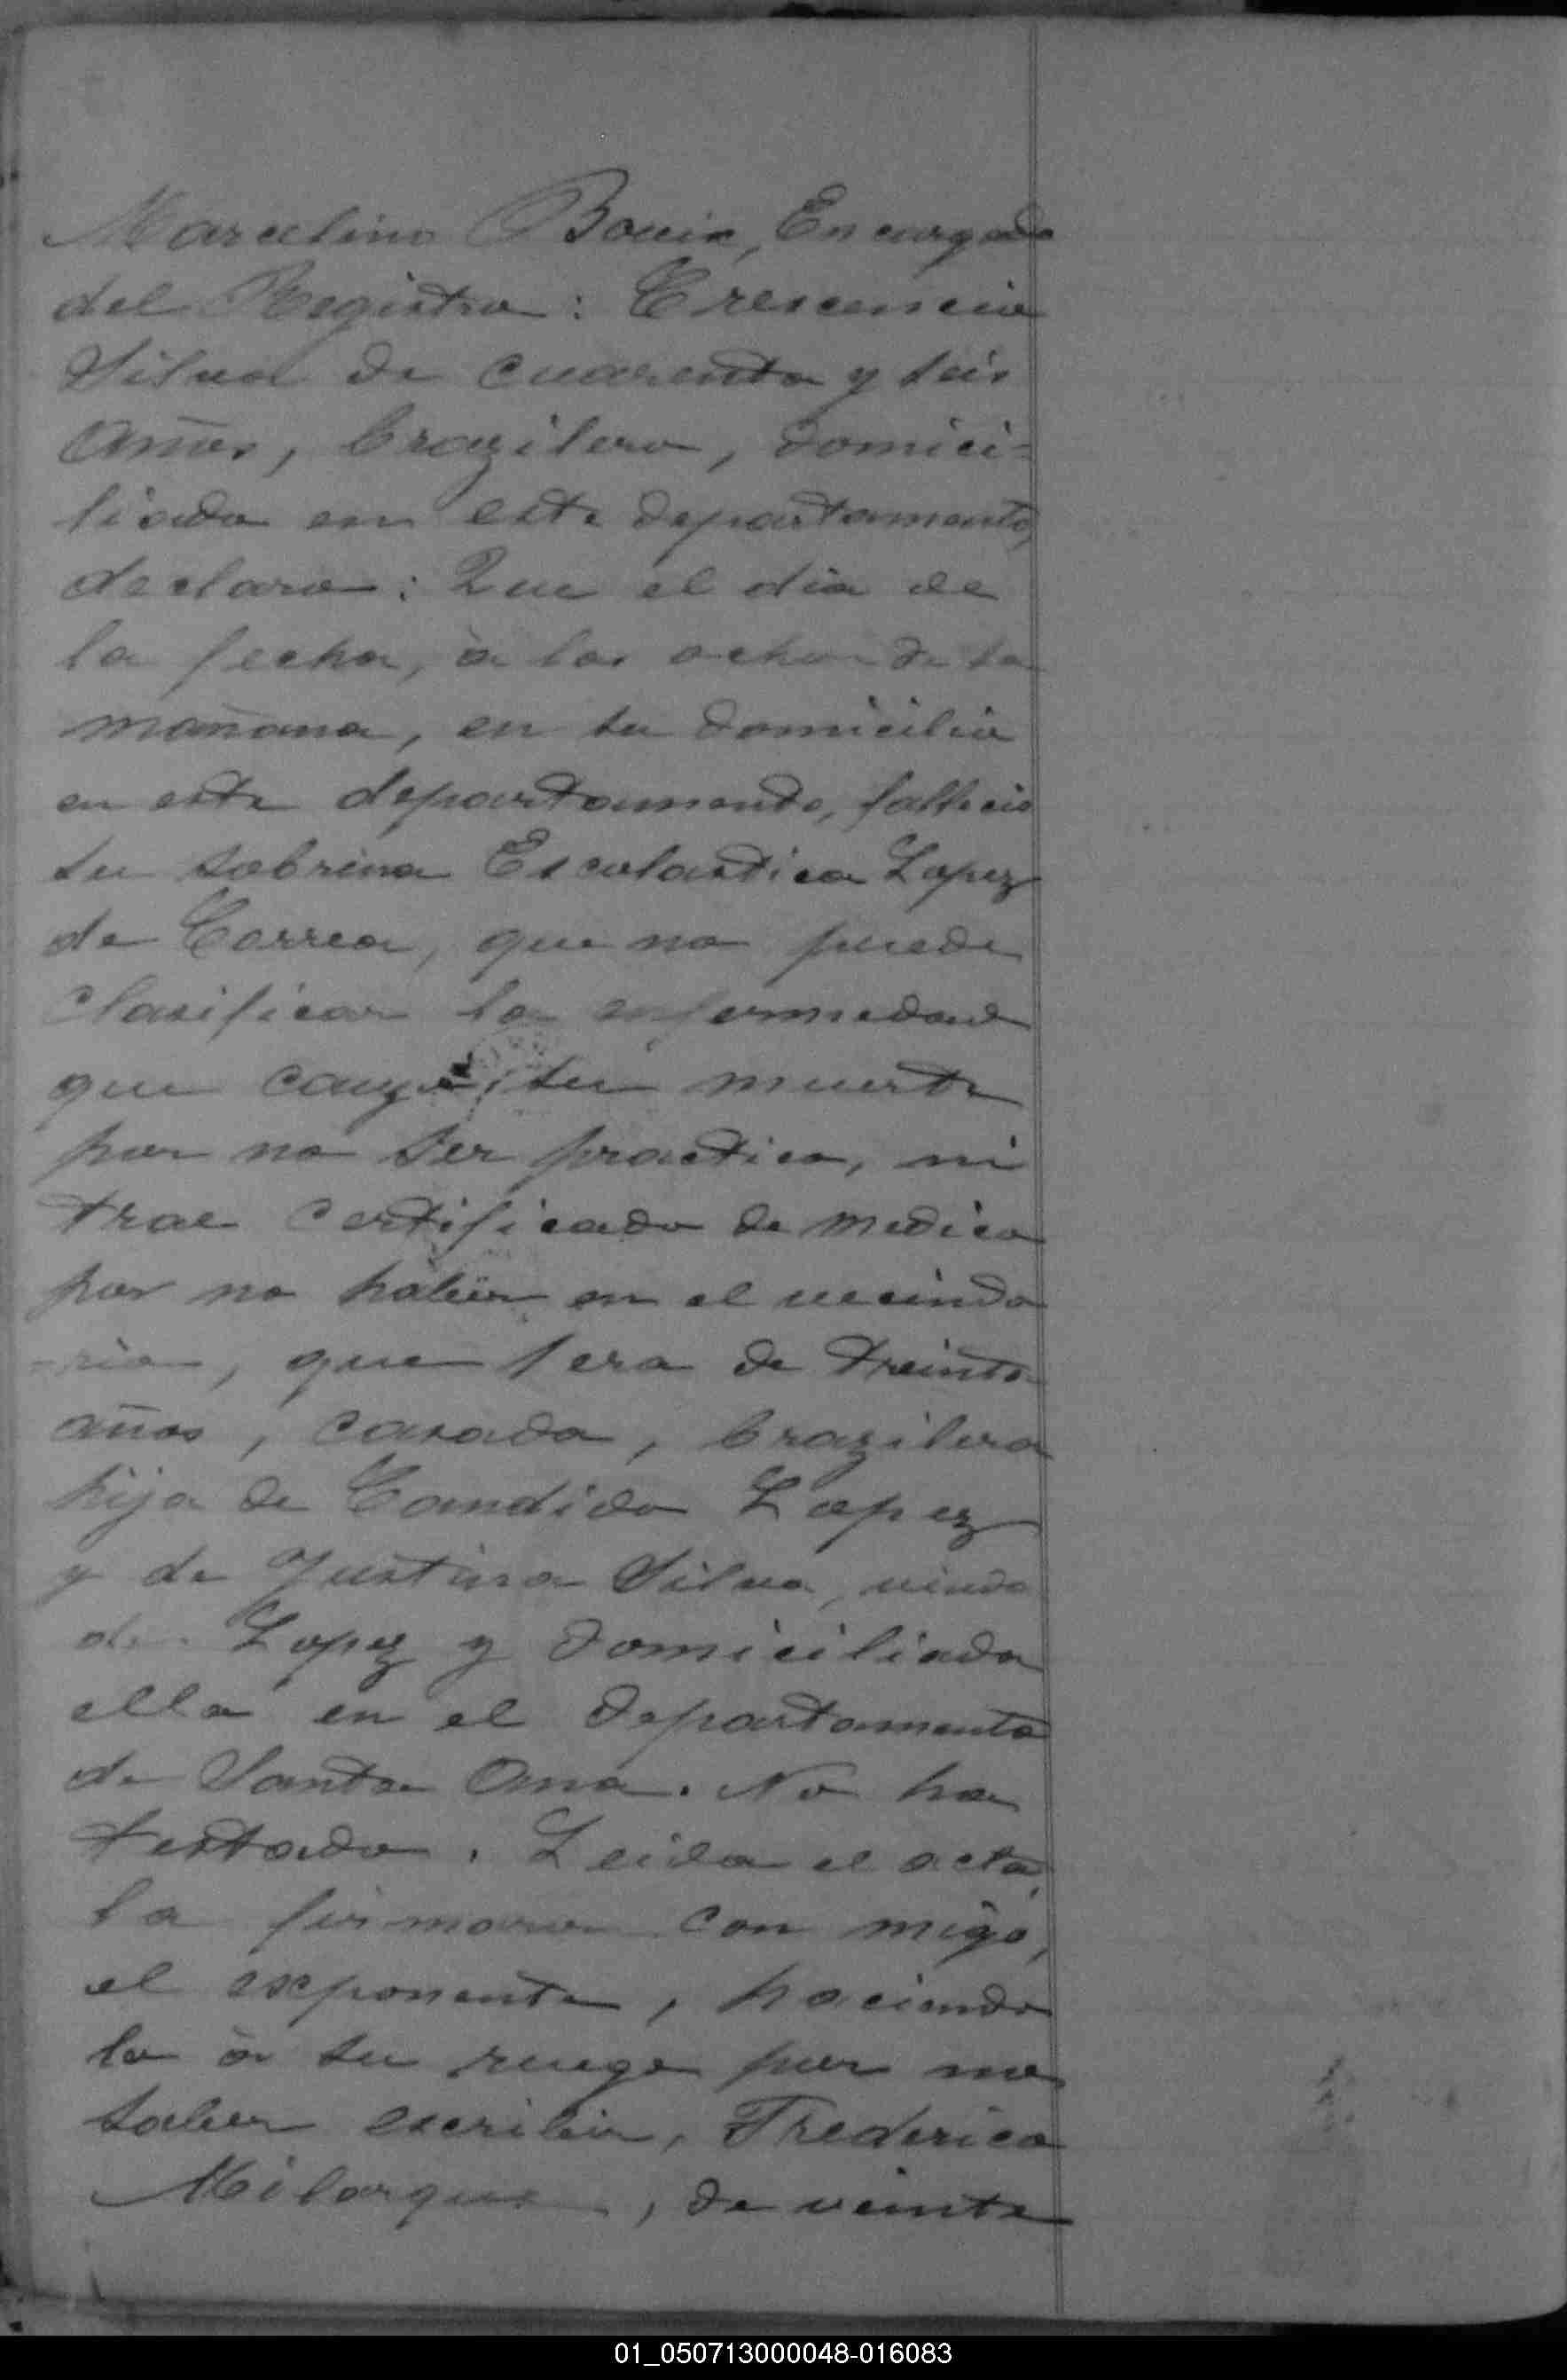 Marcelino Bouix, Encargado
del Registro: Crescencio
Silva de cuarenta y seis
años, brazilero, domici-
liado en este departamento,
declaro: Que el dia de
la fecha, à las ocho de la
mañana, en su domicilio
en este departamento, fallecio
su sobrina Escolastica Lopez
de Correa, que no puede
clasificar la enfermedad
que causó su muerte
por no ser practico, ni
trae certificado de medico
por no haber en el vecinda
-rio, que era de treinta
años, casada, brazilera
hija de Candido Lopez
y de Justina Silva, viuda
de Lopez y domiciliada
ella en el departamento
de Santa Ana. No ha
testado. Leida el acta,
la firmaron con migo,
el exponente, haciendo
lo à su ruego por no
saber escribir, Frederico
de veinte
01_050713000048-016083